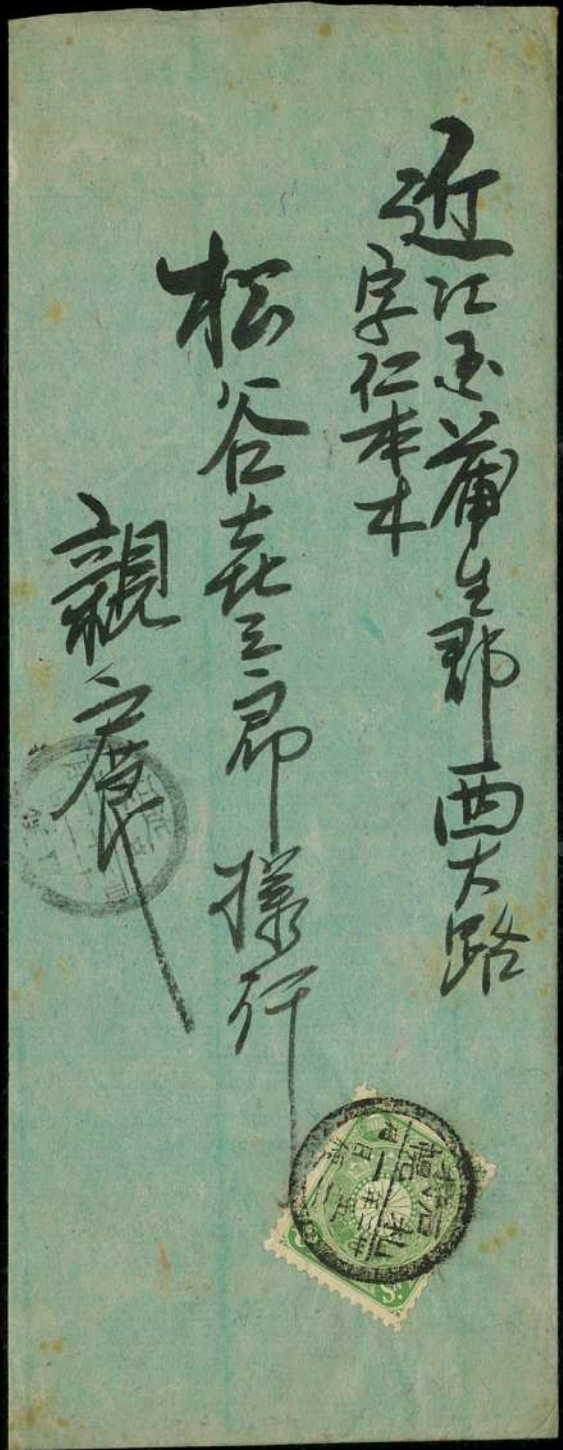 近江国蒲生郡西大路
字仁本木
松谷喜三郎様行
親展
札幌